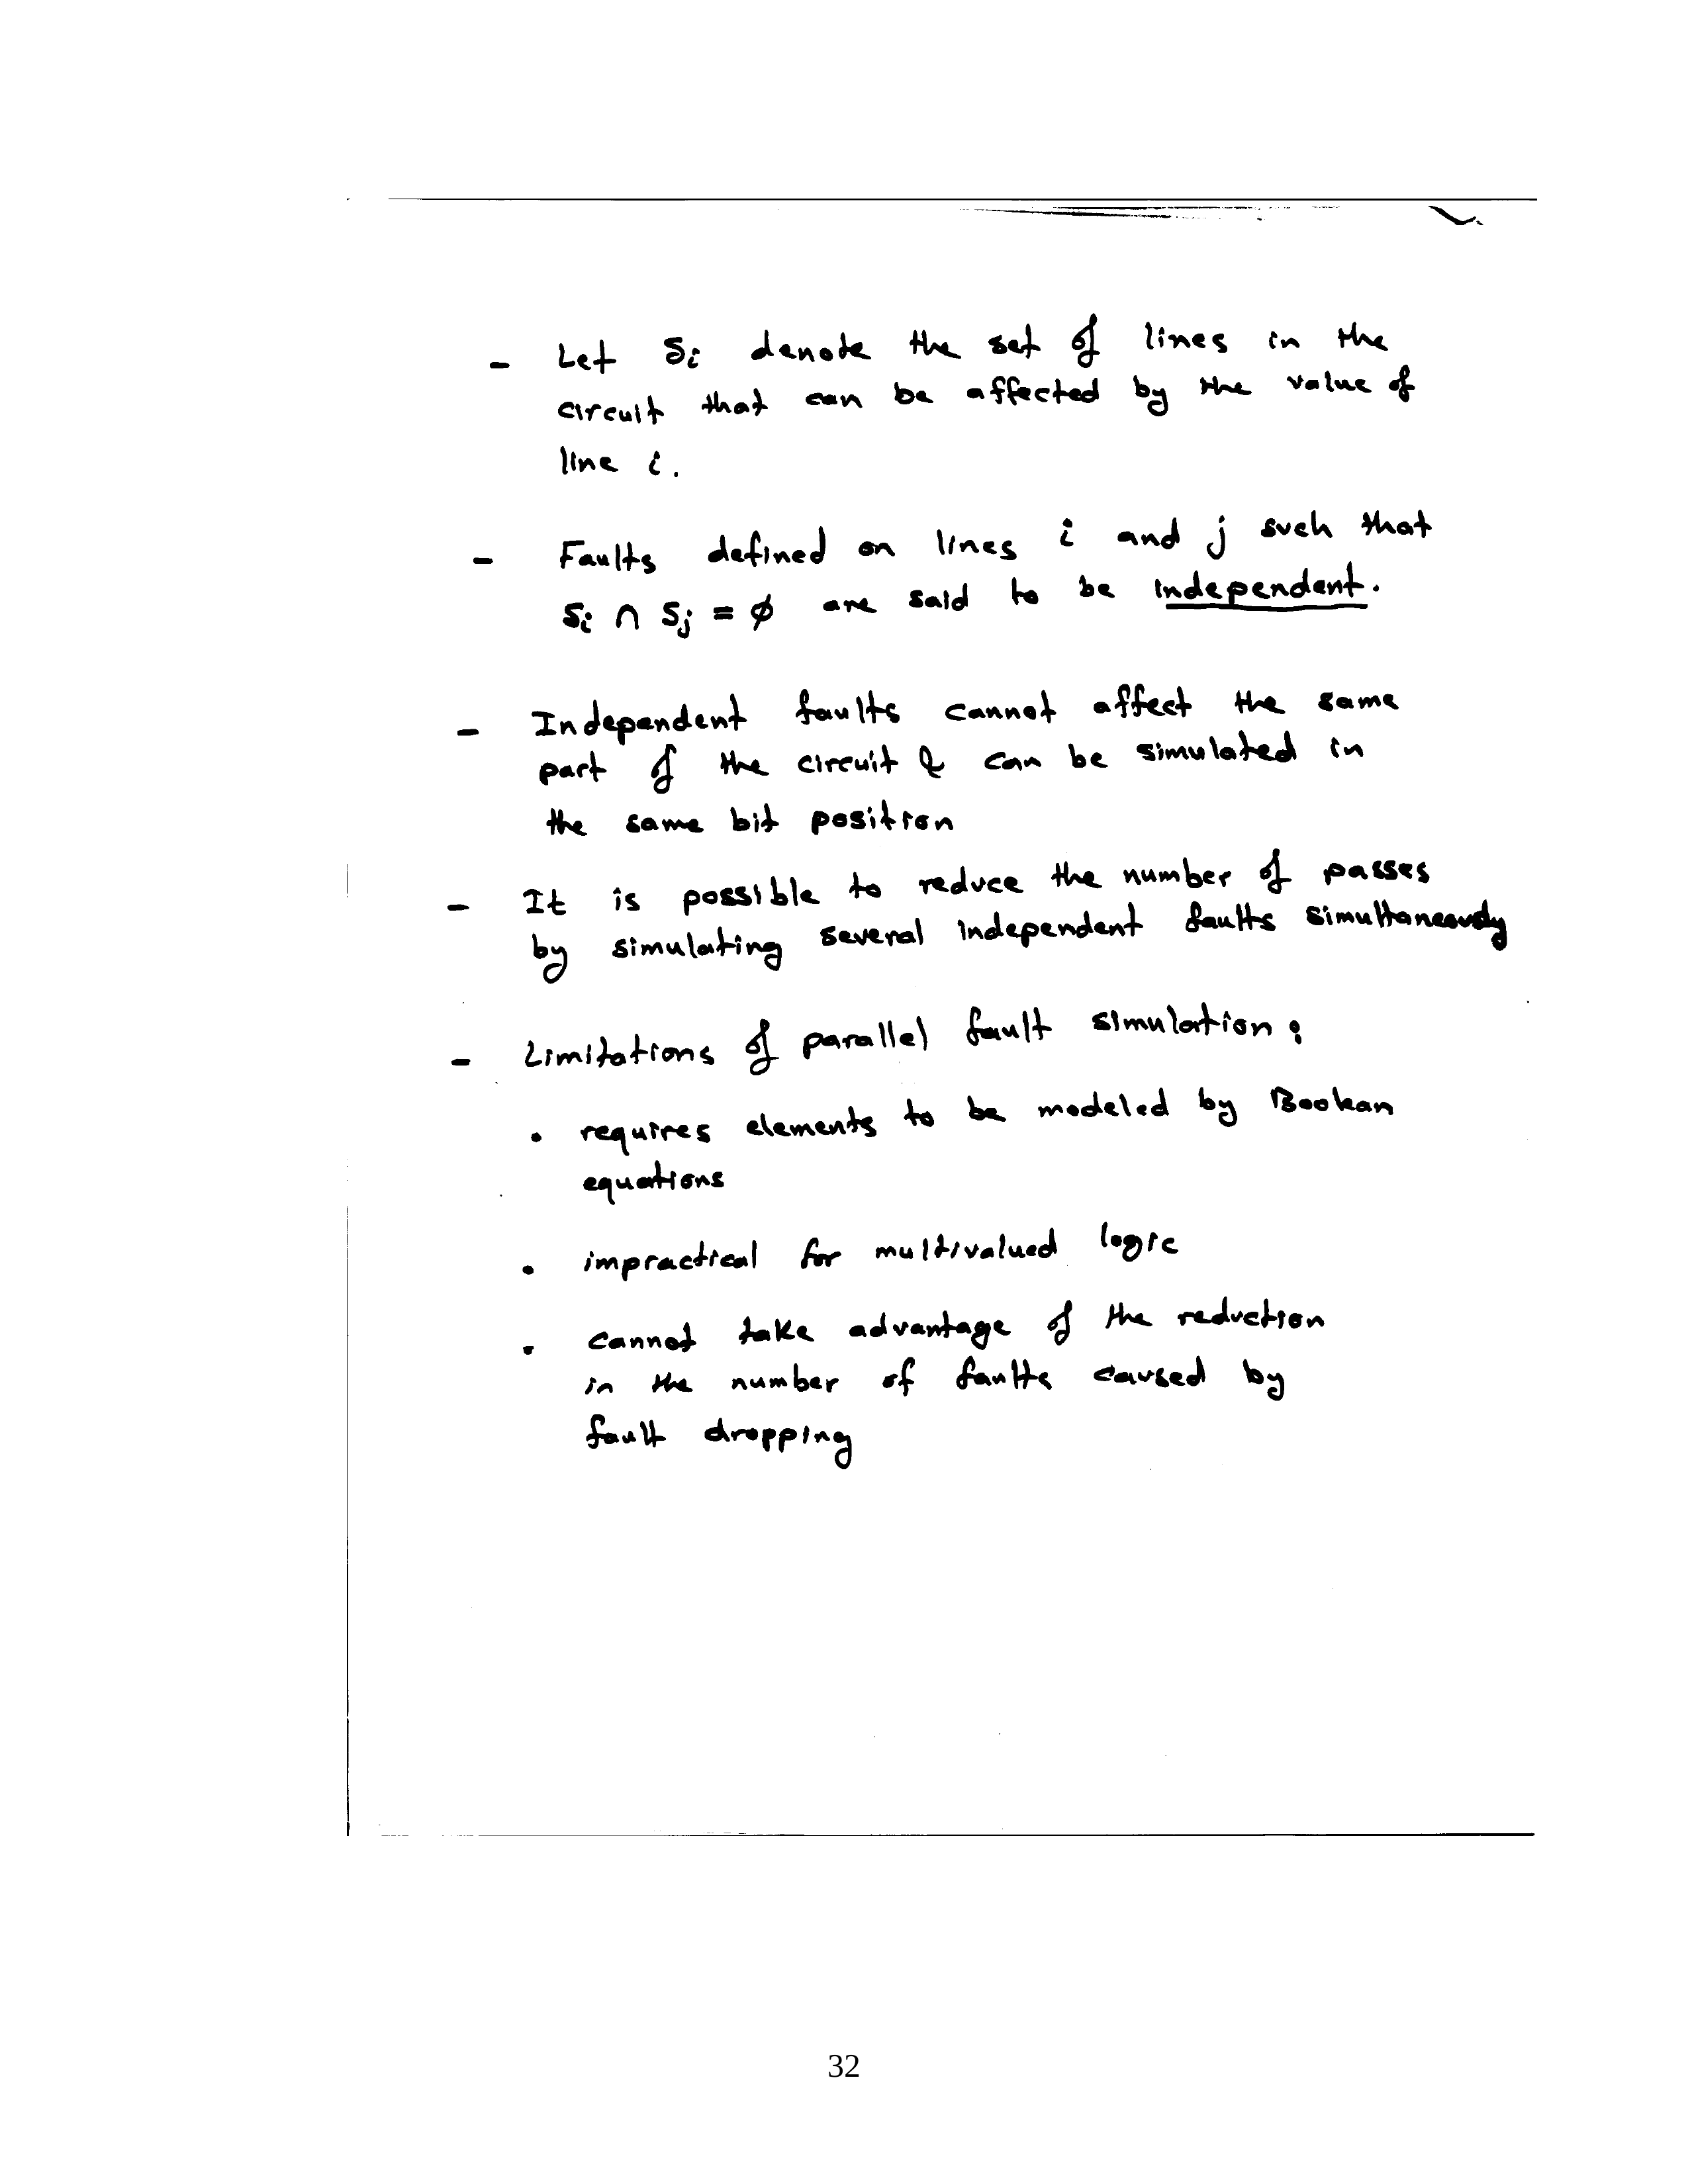 - Let Si denote the set of lines in the
circuit that can be affected by the value of
line i.
- Faults defined on lines i and j such that
Si ∩ Sj = ∅ are said to be independent.
- Independent faults cannot affect the same
part of the circuit & can be simulated in
the same bit position
- It is possible to reduce the number of passes
by simulating several independent faults simultaneously
- Limitations of parallel fault simulation:
• requires elements to be modeled by Boolean
equations
• impractical for multivalued logic
• cannot take advantage of the reduction
in the number of faults caused by
fault dropping
32